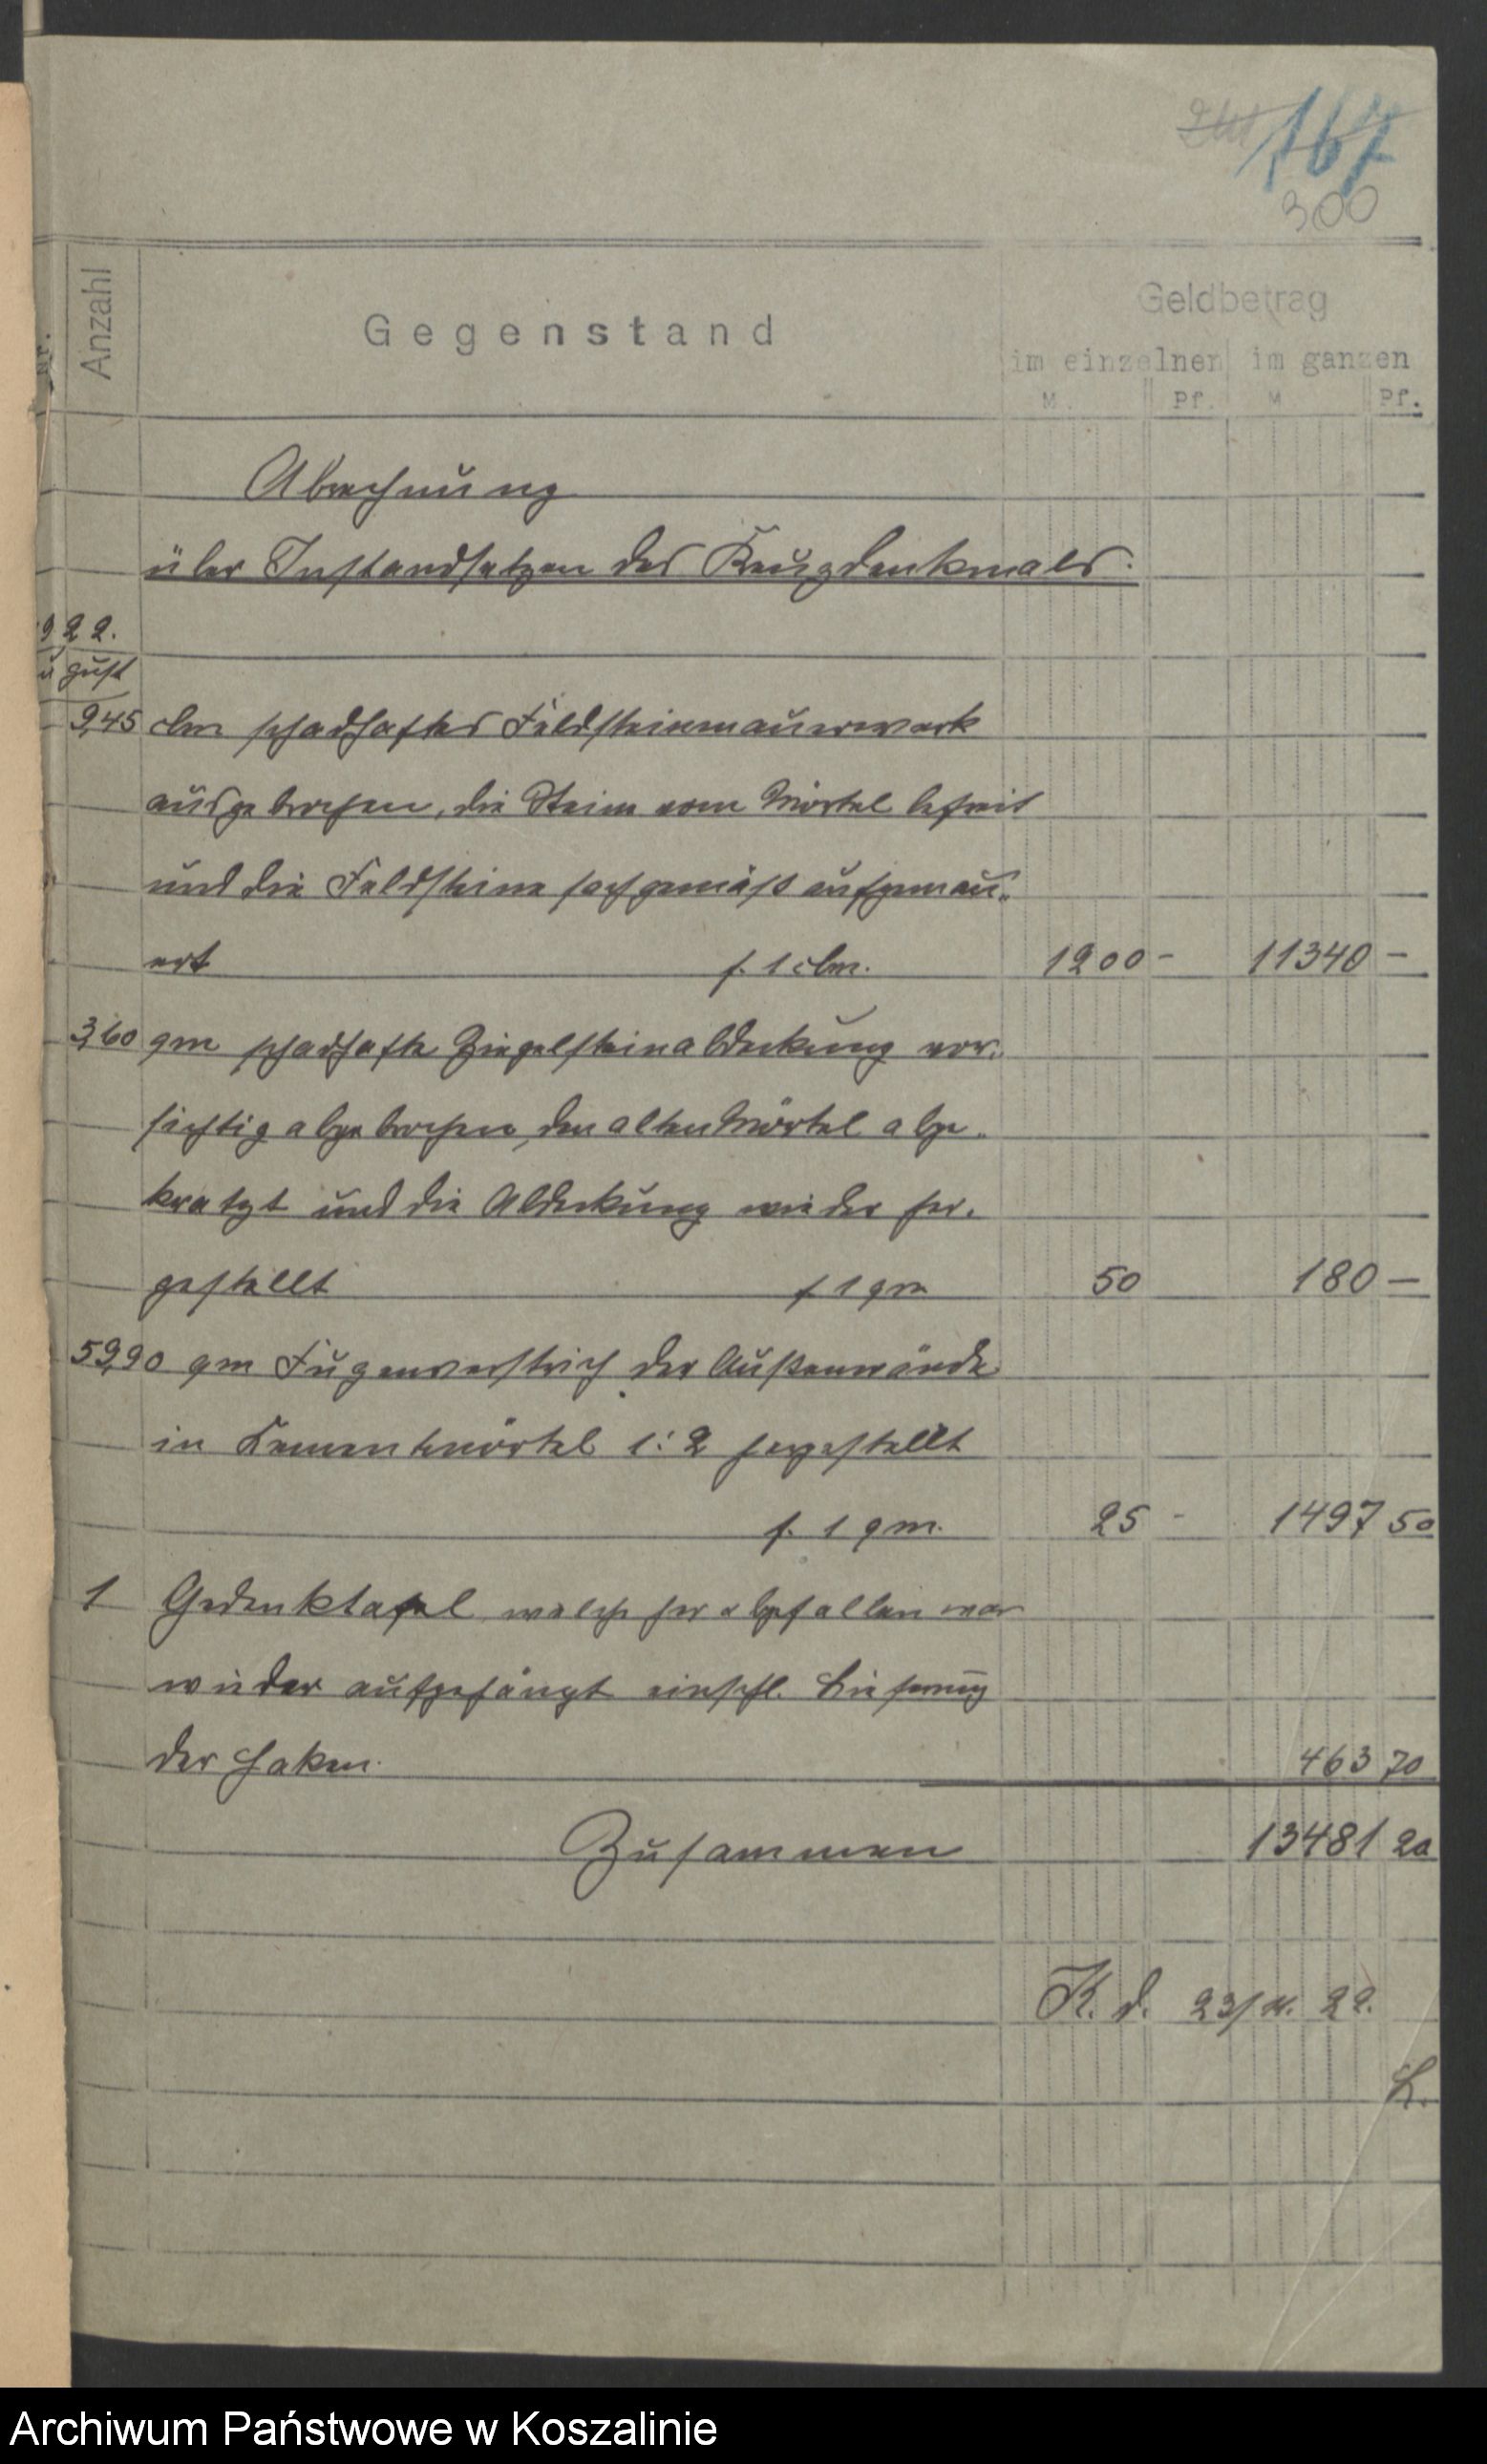 167
300
Nr.
Anzahl
Gegenstand
Geldbetrag
im einzelnen im ganzen
M. Pf. M Pf.
Abrechnung
über Instandsetzen des Kreuzdenkmals.
1922.
August
9,45 cbm schadhaftes Feldsteinmauerwerk
ausgebrochen, die Steine vom Mörtel befreit
und die Feldsteine sachgemäß aufgemau-
ert f. 1 cbm. 1200 - 11340 -
3,60 qm schadhafte Ziegelsteinabdeckung vor-
sichtig abgebrochen, den alten Mörtel abge-
kratzt und die Abdeckung wieder her-
gestellt f 1 qm 50 180 -
59,90 qm Fugenverstrich der Außenwände
in Zementmörtel 1:2 hergestellt
f. 1 qm. 25 - 1497 50
1 Gedenktafel welche herabgefallen war
wieder aufgehängt einschl. Lieferung
der Haken. 463 70
Zusammen 13481 20
K. d. 22.
L.
Archiwum Państwowe w Koszalinie